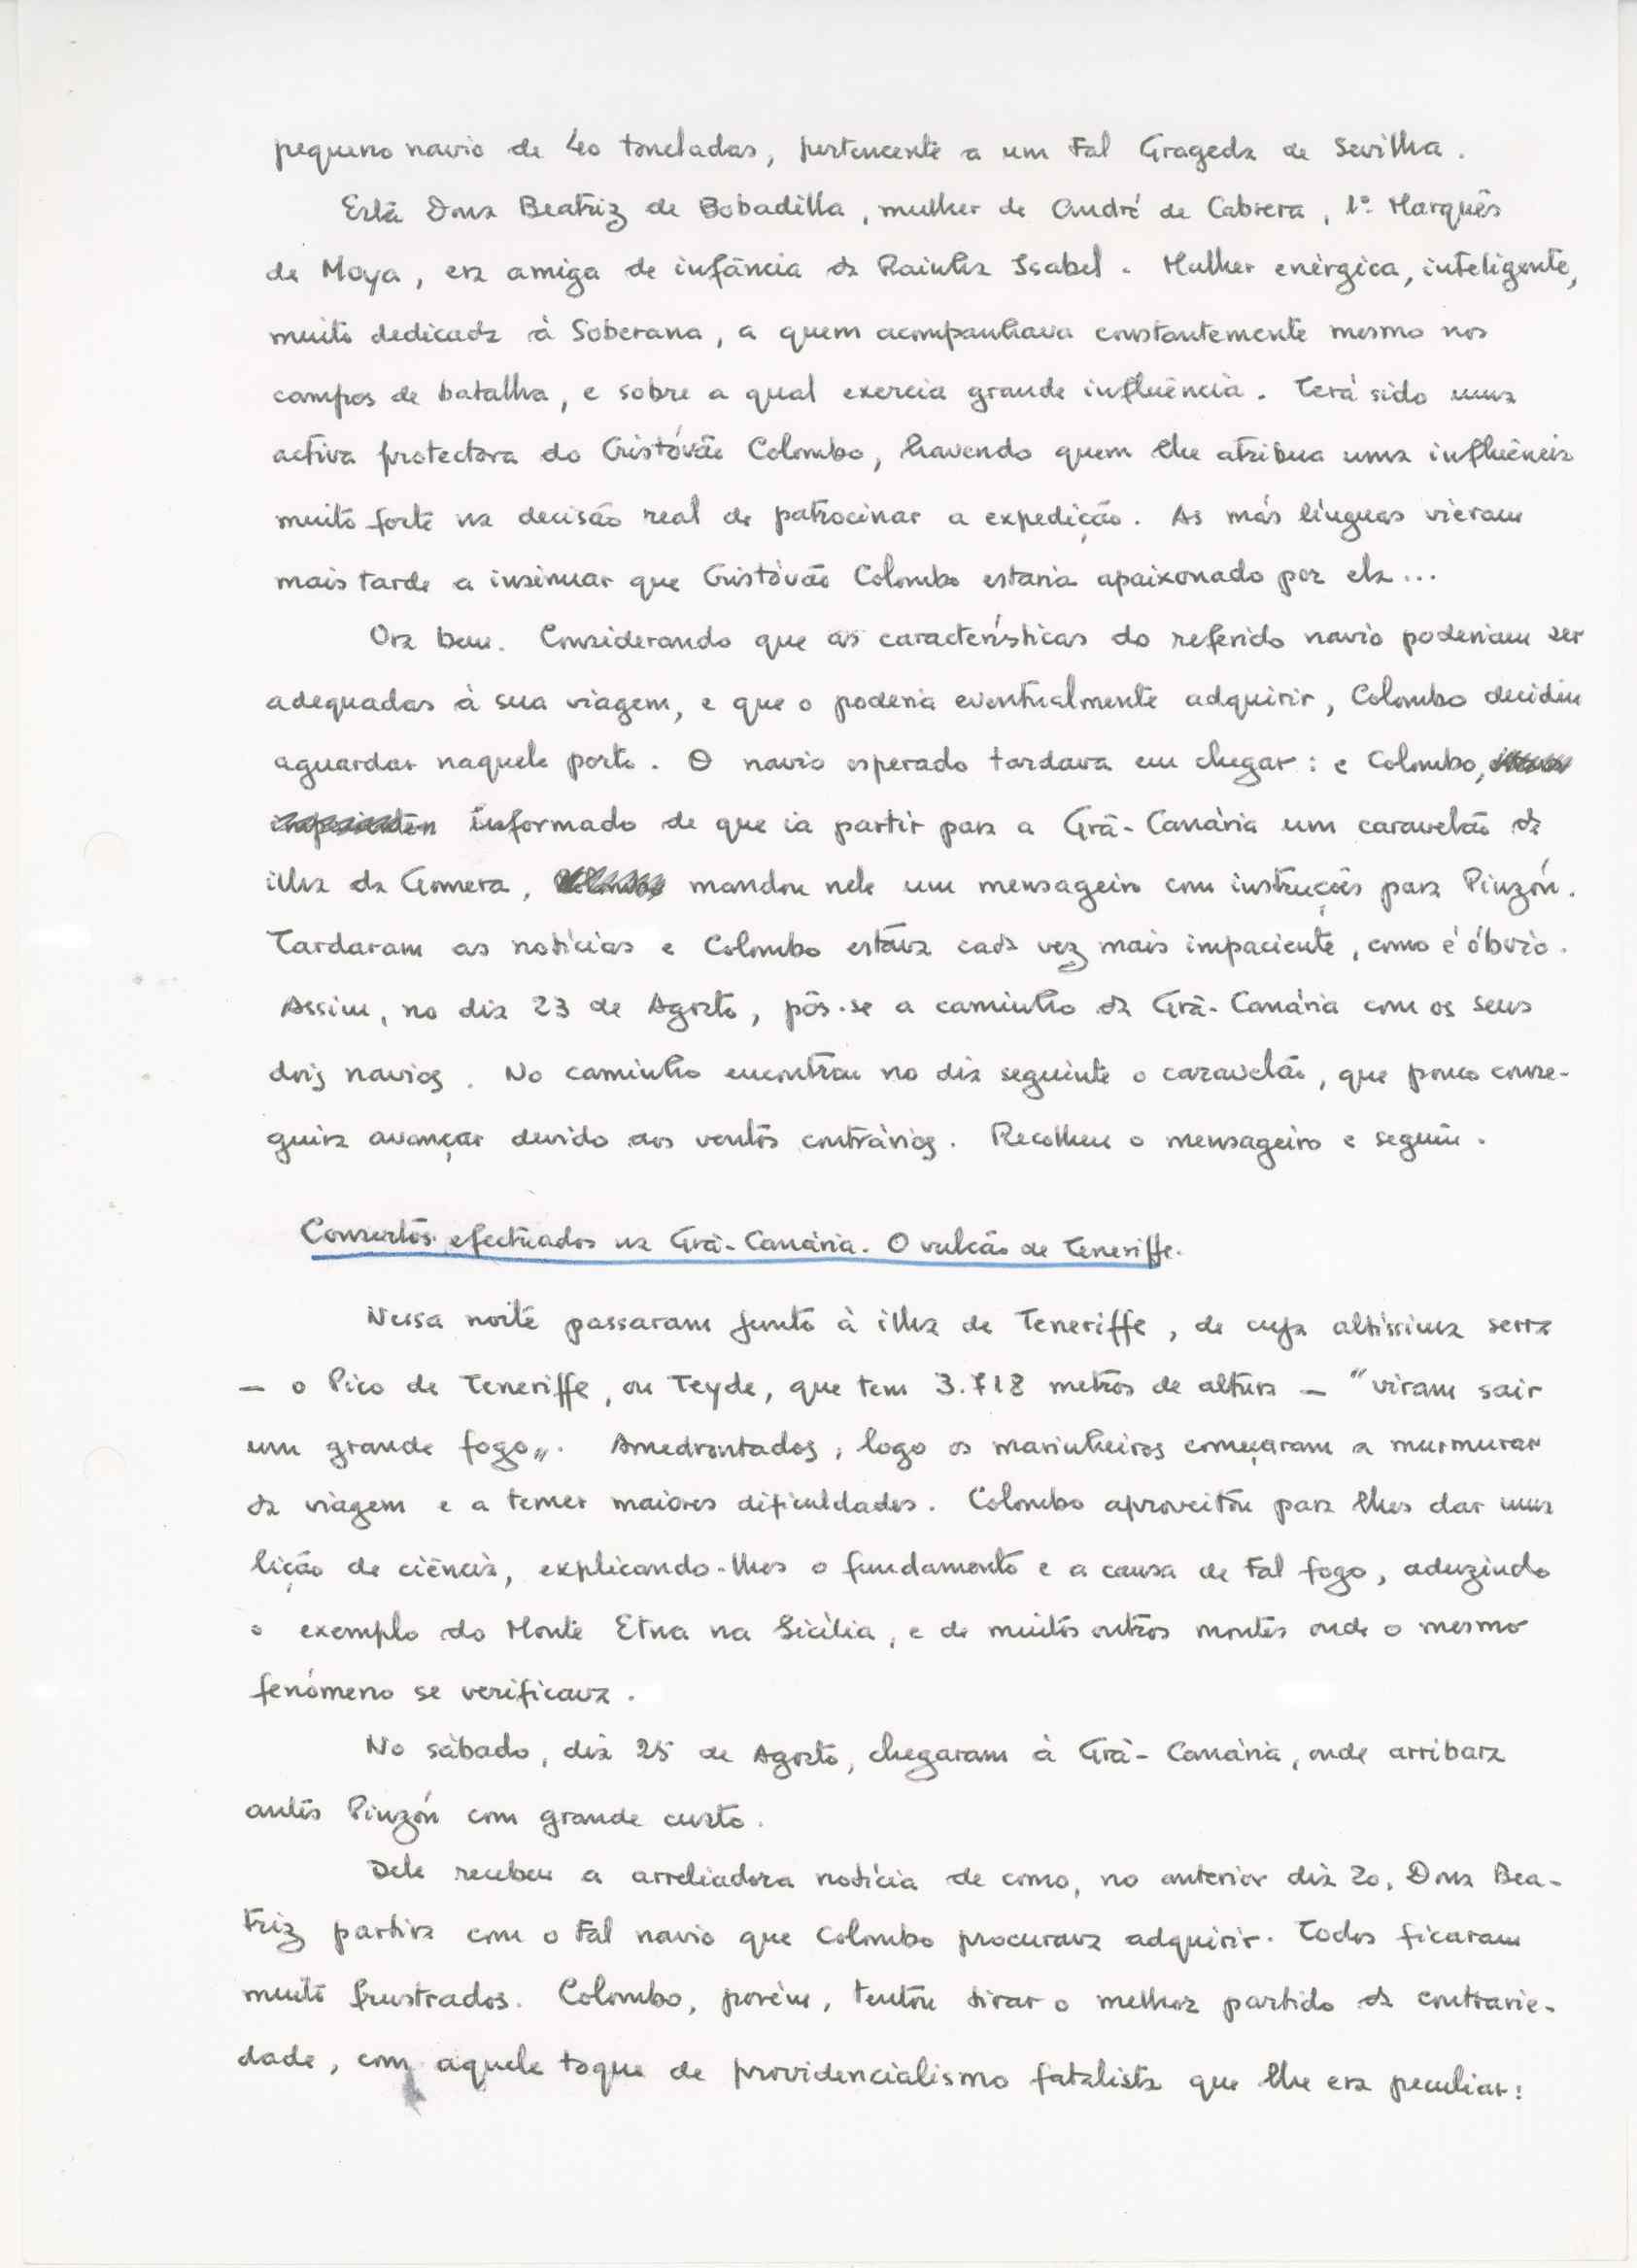 pequeno navio de 40 toneladas, pertencente a um tal Grageda de Sevilha.
Esta Dona Beatriz de Bobadilla, mulher de André de Cabrera, 1º Marquês
de Moya, era amiga de infância da Rainha Isabel. Mulher enérgica, inteligente,
muito dedicada à Soberana, a quem acompanhava constantemente mesmo nos
campos de batalha, e sobre a qual exercia grande influência. Terá sido uma
activa protectora do Cristóvão Colombo, havendo quem lhe atribua uma influência
muito forte na decisão real de patrocinar a expedição. As más línguas vieram
mais tarde a insinuar que Cristóvão Colombo estaria apaixonado por ela...
Ora bem. Considerando que as características do referido navio poderiam ser
adequadas à sua viagem, e que o poderia eventualmente adquirir, Colombo decidiu
aguardar naquele porto. O navio esperado tardava em chegar: e Colombo,
informado de que ia partir para a Grã-Canária um caravelão da
ilha da Gomera, mandou nele um mensageiro com instruções para Pinzón.
Tardaram as notícias e Colombo estava cada vez mais impaciente, como é óbvio.
Assim, no dia 23 de Agosto, pôs-se a caminho da Grã-Canária com os seus
dois navios. No caminho encontrou no dia seguinte o caravelão, que pouco conse-
guira avançar devido aos ventos contrários. Recolheu o mensageiro e seguiu.
Consertos efectuados na Grã-Canária. O vulcão de Teneriffe.
Nessa noite passaram junto à ilha de Teneriffe, de cuja altíssima serra
— o Pico de Teneriffe, ou Teyde, que tem 3.718 metros de altura — "viram sair
um grande fogo". Amedrontados, logo os marinheiros começaram a murmurar
da viagem e a temer maiores dificuldades. Colombo aproveitou para lhes dar uma
lição de ciência, explicando-lhes o fundamento e a causa de tal fogo, aduzindo
o exemplo do Monte Etna na Sicília, e de muitos outros montes onde o mesmo
fenómeno se verificava.
No sábado, dia 25 de Agosto, chegaram à Grã-Canária, onde arribara
antes Pinzón com grande custo.
Dele recebeu a arreliadora notícia de como, no anterior dia 20, Dona Bea-
triz partira com o tal navio que Colombo procurava adquirir. Todos ficaram
muito frustrados. Colombo, porém, tentou tirar o melhor partido da contrarie-
dade, com aquele toque de providencialismo fatalista que lhe era peculiar: